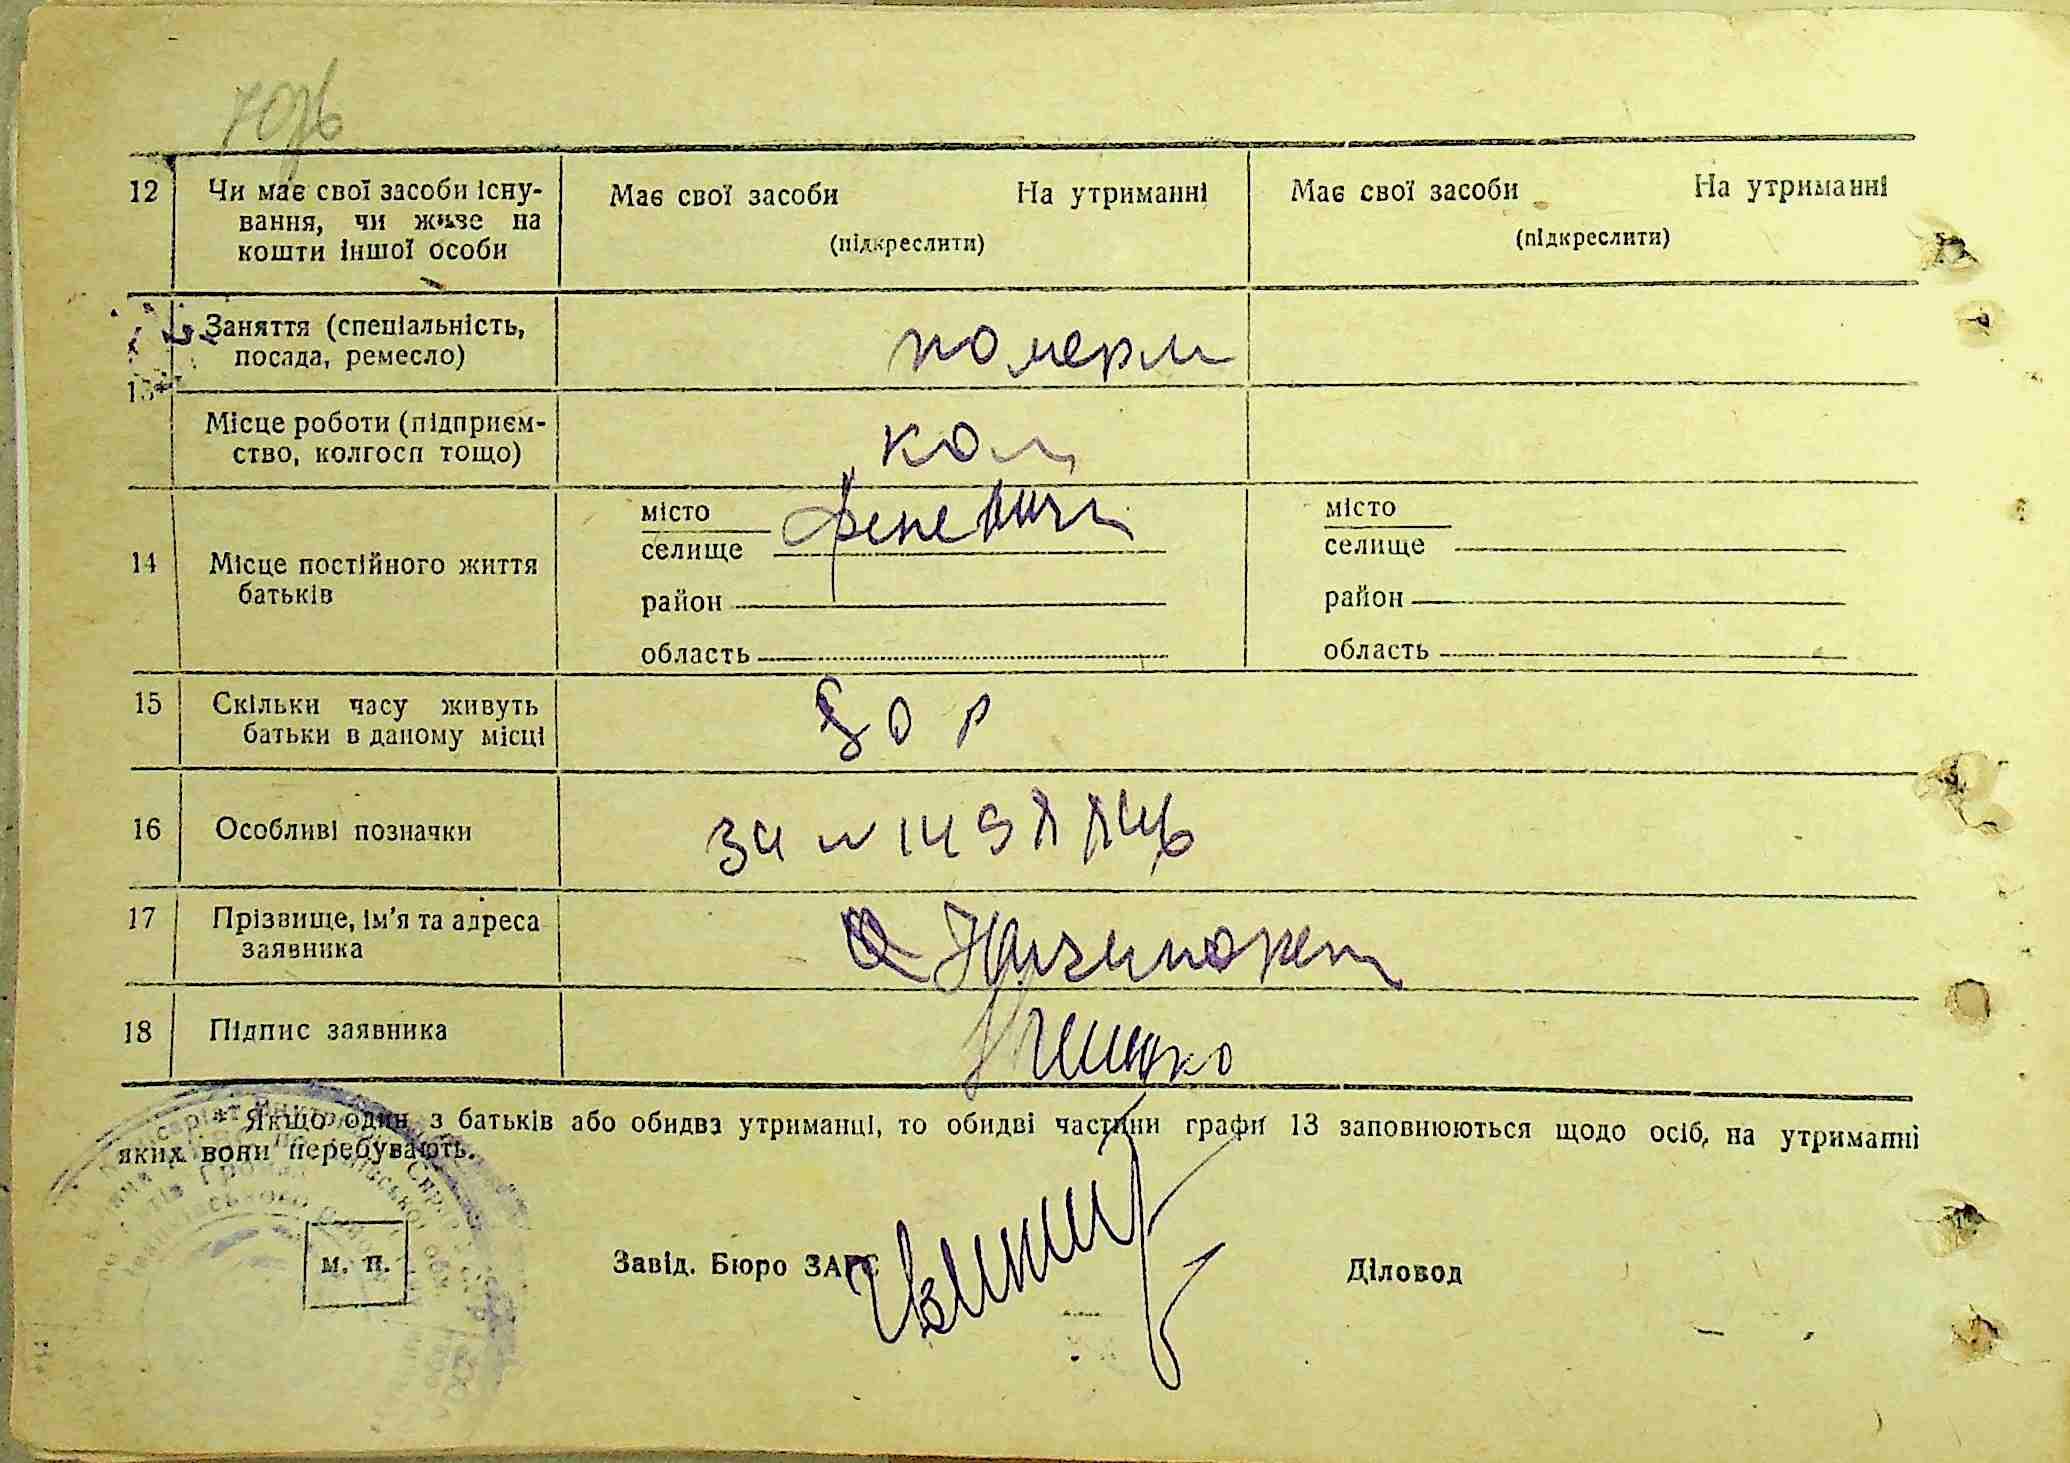 12 Чи має свої засоби існу-
вання, чи живе на
кошти іншої особи
Має свої засоби На утриманні
(підкреслити)
Має свої засоби На утриманні
(підкреслити)
13*
Заняття (спеціальність,
посада, ремесло)
померли
Місце роботи (підприєм-
ство, колгосп тощо)
кол
14 Місце постійного життя
батьків
місто
селище Феневичі
район
область
місто
селище
район
область
15 Скільки часу живуть
батьки в даному місці
16 Особливі позначки
17 Прізвище, ім'я та адреса
заявника
18 Підпис заявника
* Якщо один з батьків або обидва утриманці, то обидві частини графи 13 заповнюються щодо осіб, на утриманні
яких вони перебувають.
М. П.
Завід. Бюро ЗАГС
Діловод